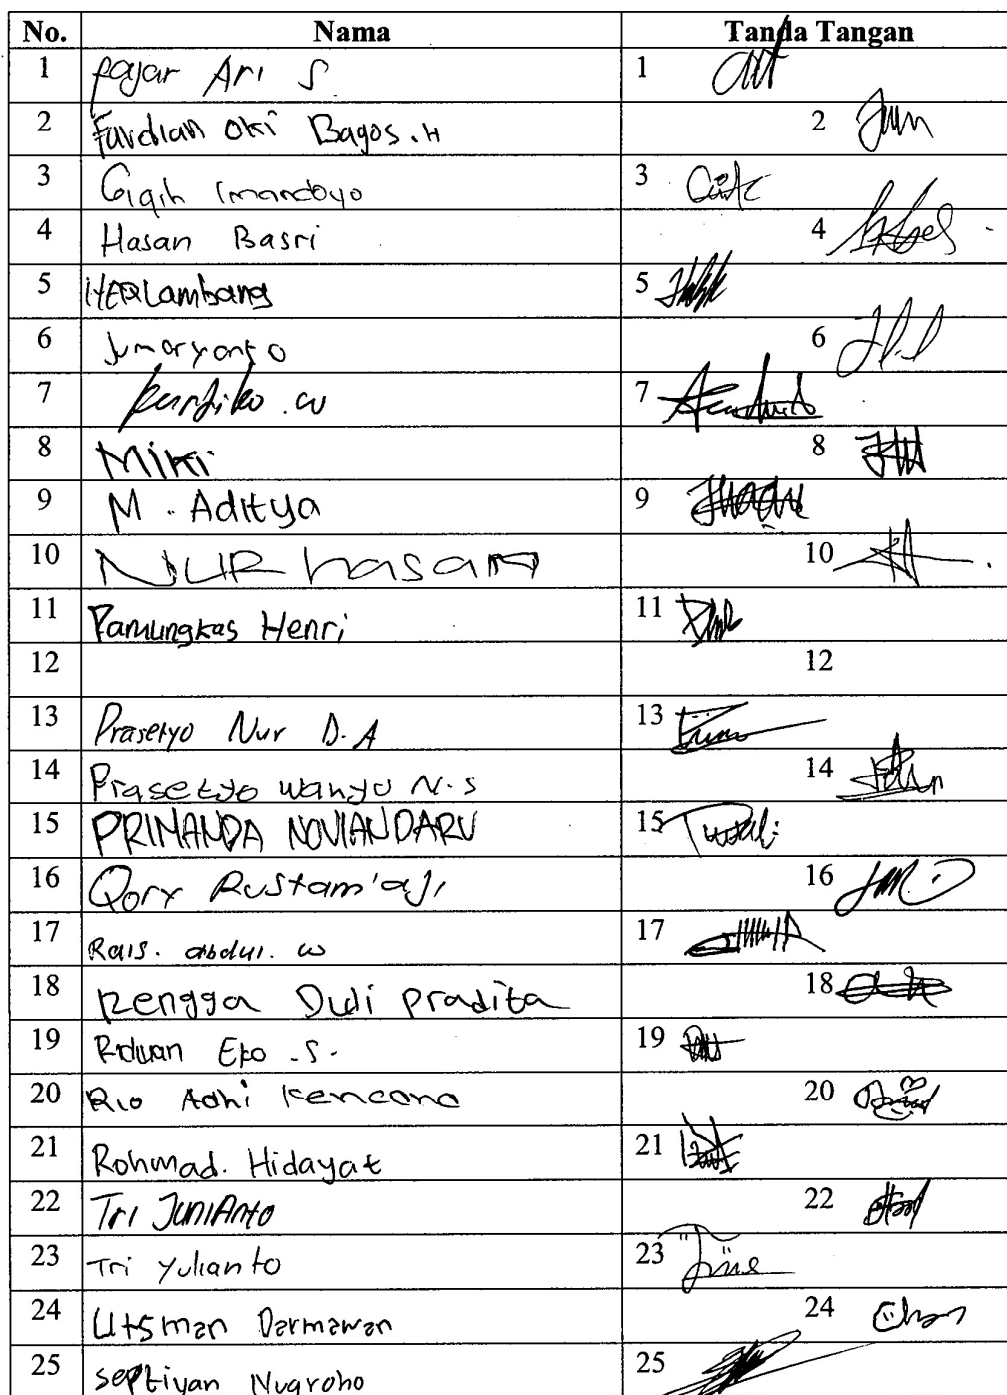 No. Nama Tanda Tangan
1 Fajar Ari S 1
2 Fardian Oki Bagos.H 2
3 Gigih Imandoyo 3
4 Hasan Basri 4
5 HERLambang 5
6 Jumaryanto 6
7 kuntjko.w 7
8 MIKI 8
9 M. Aditya 9
10 NUR hasan 10
11 Pamungkas Henri 11
12 12
13 Prasetyo Nur D.A 13
14 Prasetyo wahyu N.S 14
15 PRIMANDA NOVIANDARU 15
16 Qory Rustam'aji 16
17 Rais. abdul. w 17
18 Rengga Dudi Pradita 18
19 Riduan Eko .S. 19
20 Rio Adhi Kencono 20
21 Rohmad. Hidayat 21
22 Tri JuniAnto 22
23 Tri Yulianto 23
24 Utsman Darmawan 24
25 septiyan Nugroho 25